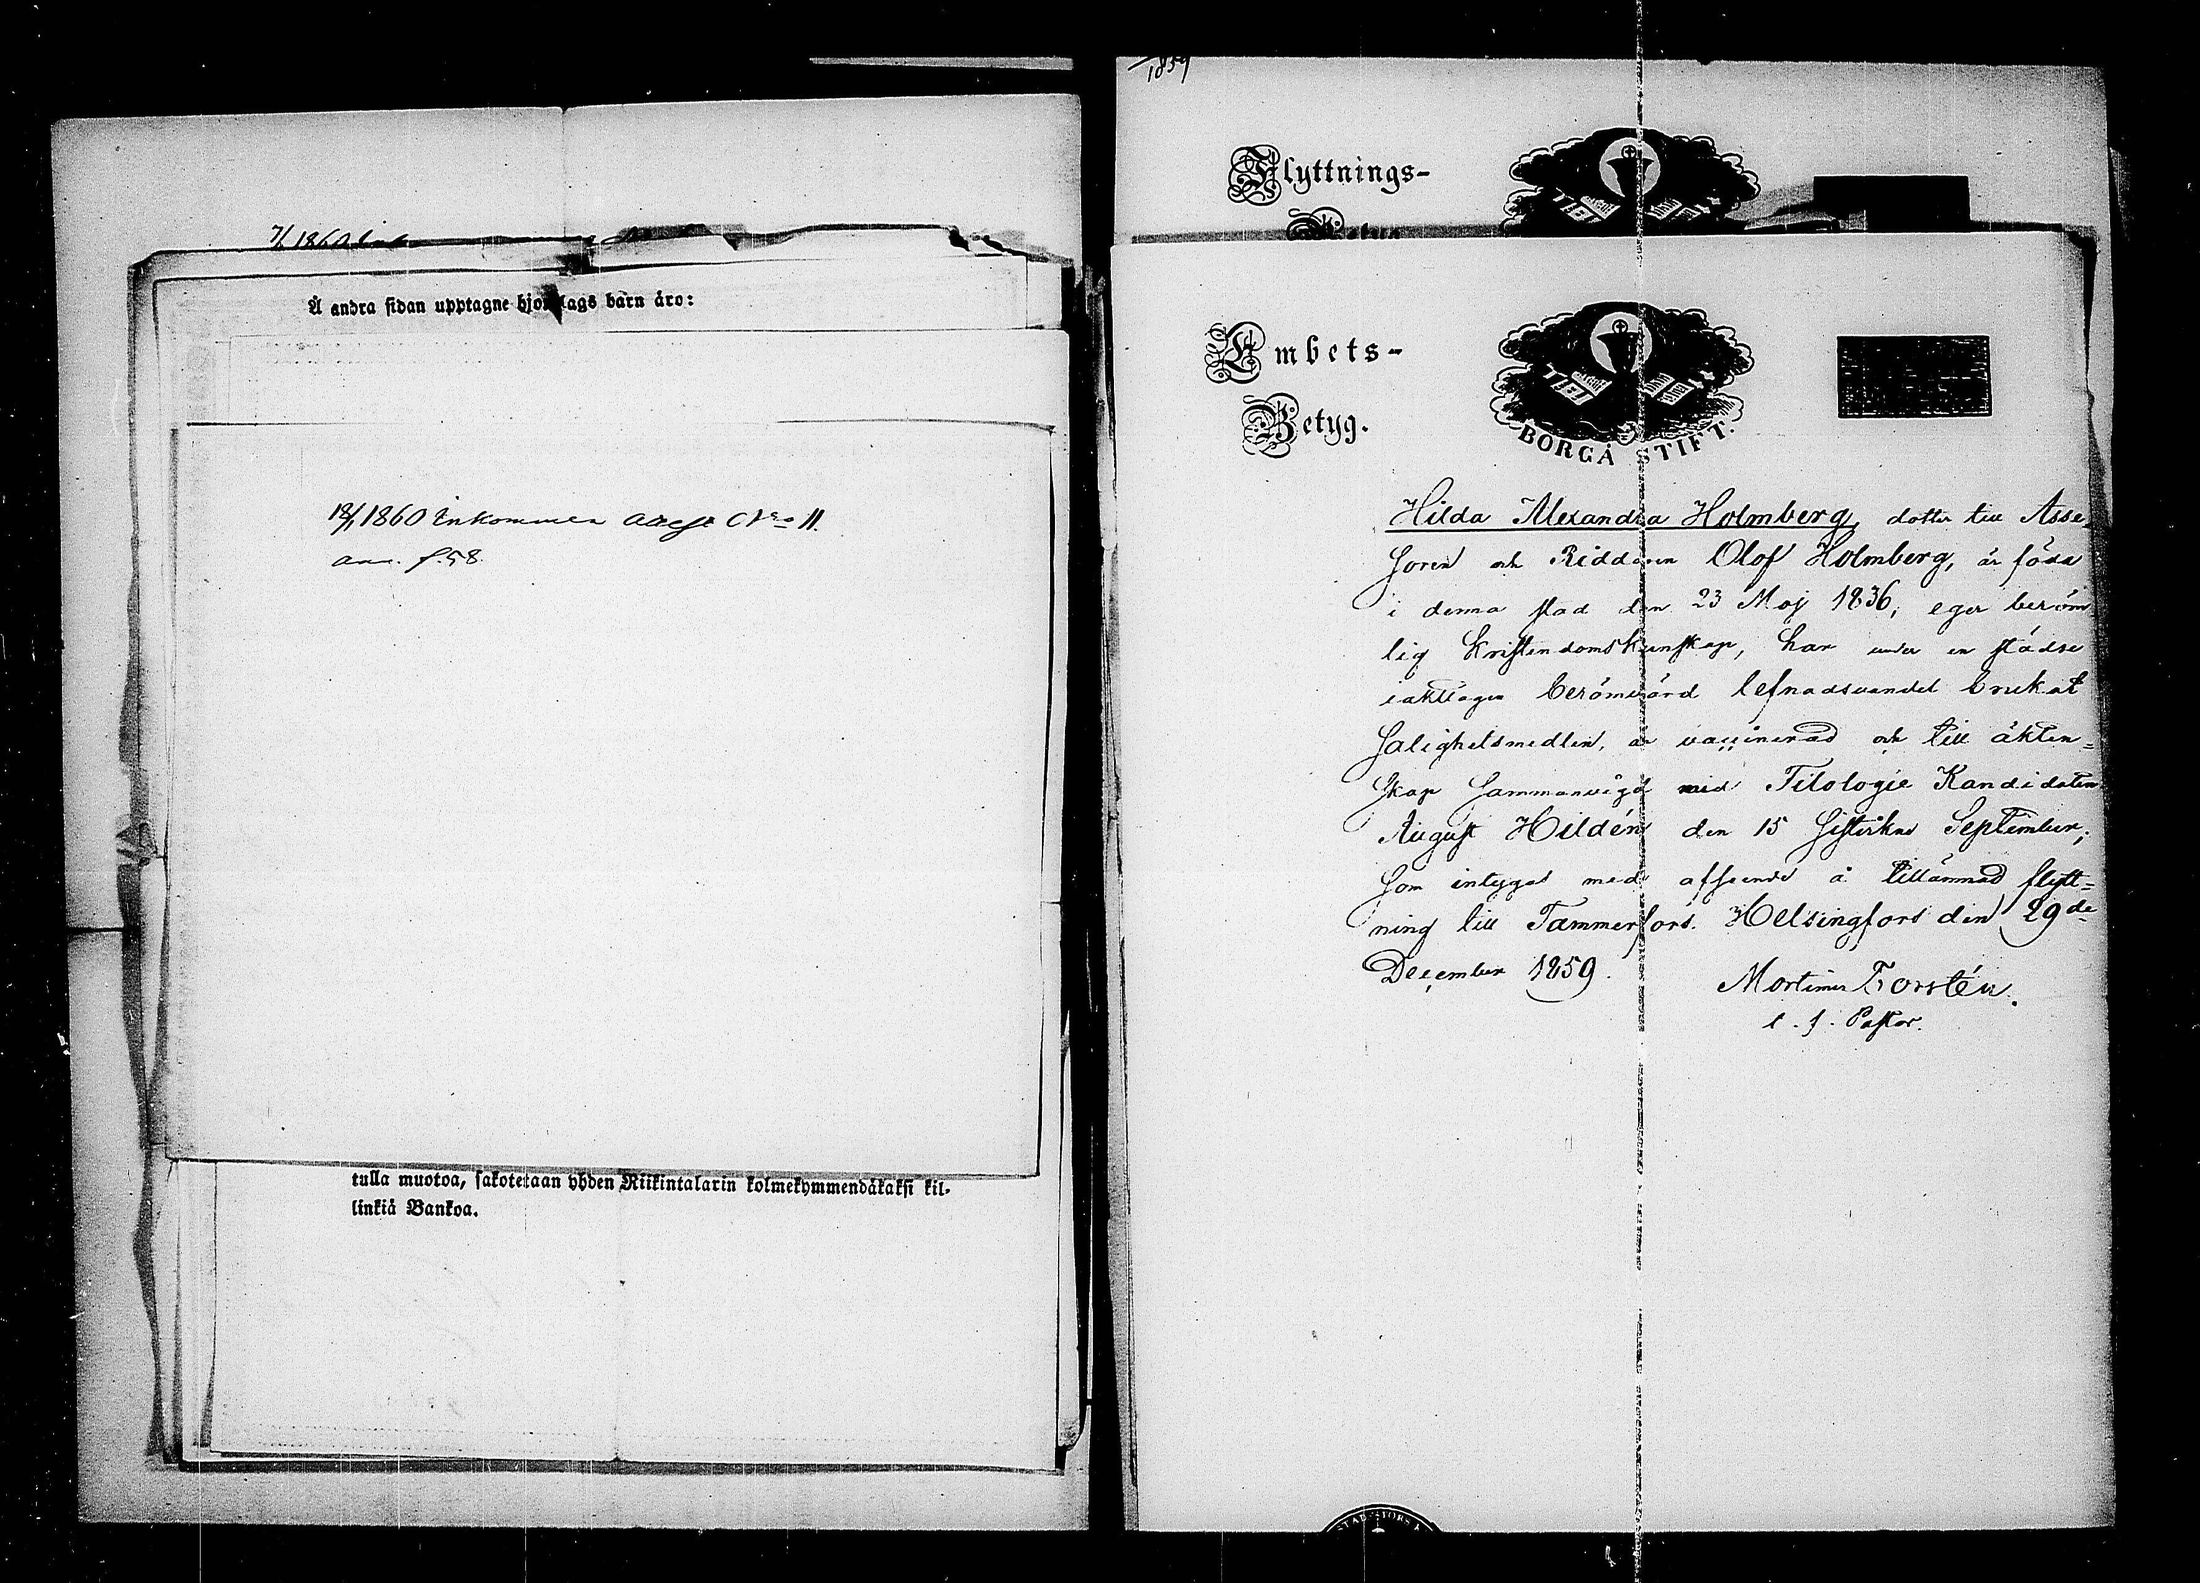 7/1 1860
Å andra sidan upptagne hjonelags barn äro:
18/1 1860 Inkommen attest No 11.
ann. f. 58.
tulla muotoa, sakotetaan yhden Riikintalarin kolmekymmendäkaksi kil-
linkiä Bankoa.
1859
Flyttnings-
Betyg
Embets-
Betyg.
BORGÅ STIFT.
Hilda Alexandra Holmberg, dotter till Asse-
soren och Riddaren Olof Holmberg, är född
i denna stad den 23 Maj 1836, eger beröm
lig kristendomskunskap, har under en städse
iakttagen berömvärd lefnadsvandel brukat
salighetsmedlen, är vaccinerad och till äkten-
skap sammanvigd med Filologie Kandidaten
August Hildén den 15 sistvikne September;
som intygat med afseende å tillämnad flytt-
ning till Tammerfors. Helsingfors den 29de
December 1859.
Mortimer Forstén.
t. f. Pastor.